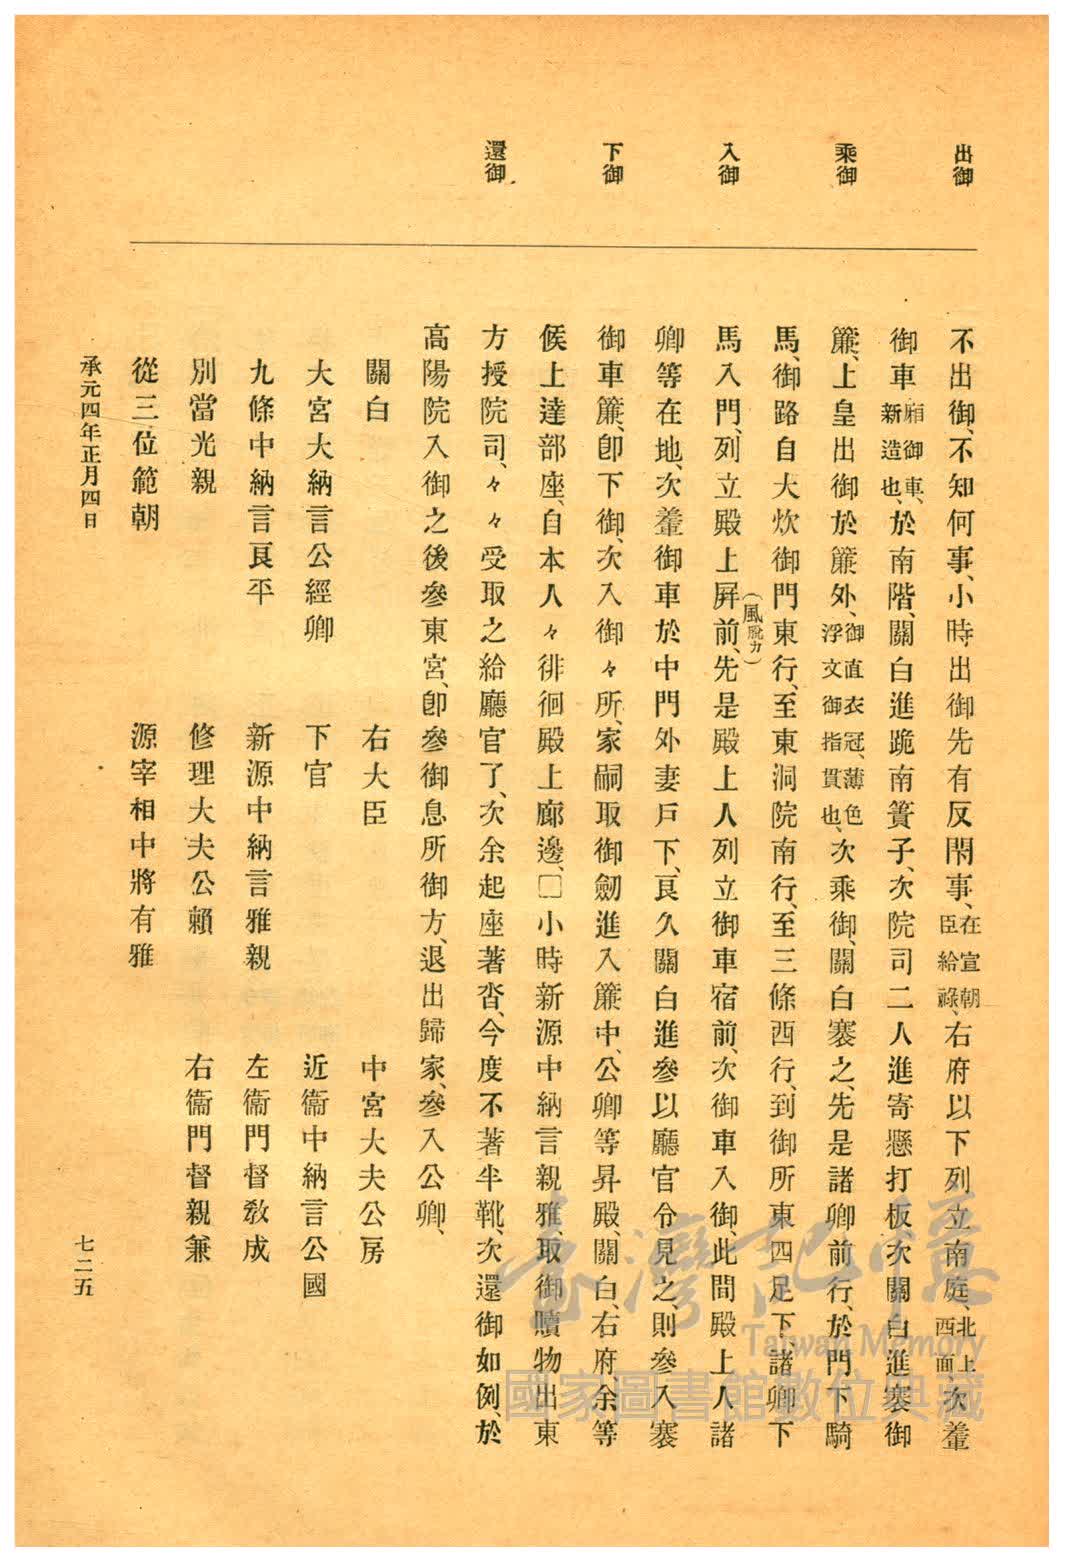 出御
乘御
入御
下御
還御
不出御、不知何事、小時出御先有反閇事、在宣朝臣給祿、右府以下列立南庭、北上西面、次輦
御車廂御車、新造也、於南階、關白進跪南簀子、次院司二人進寄懸打板次關白進褰御
簾、上皇出御於簾外、御直衣冠、薄色浮文御指貫也、次乘御、關白褰之、先是諸卿前行、於門下騎
馬、御路自大炊御門東行、至東洞院南行、至三條西行、到御所東四足下、諸卿下
馬入門、列立殿上屛前、先是殿上人列立御車宿前、次御車入御、此間殿上人諸
(風脫カ)
卿等在地、次輦御車於中門外妻戶下、良久關白進參以廳官令見之、則參入褰
御車簾、卽下御、次入御々所、家嗣取御劒進入簾中、公卿等昇殿、關白、右府、余等
候上達部座、自本人々徘徊殿上廊邊、□小時新源中納言親雅、取御贖物出東
方授院司、々々受取之給廳官了、次余起座著沓、今度不著半靴、次還御如例、於
高陽院入御之後參東宮、卽參御息所御方、退出歸家、參入公卿、
關白 右大臣 中宮大夫公房
大宮大納言公經卿 下官 近衞中納言公國
九條中納言良平 新源中納言雅親 左衞門督敎成
別當光親 修理大夫公賴 右衞門督親兼
從三位範朝 源宰相中將有雅
承元四年正月四日 七二五
臺灣記憶
Taiwan Memory
國家圖書館數位典藏